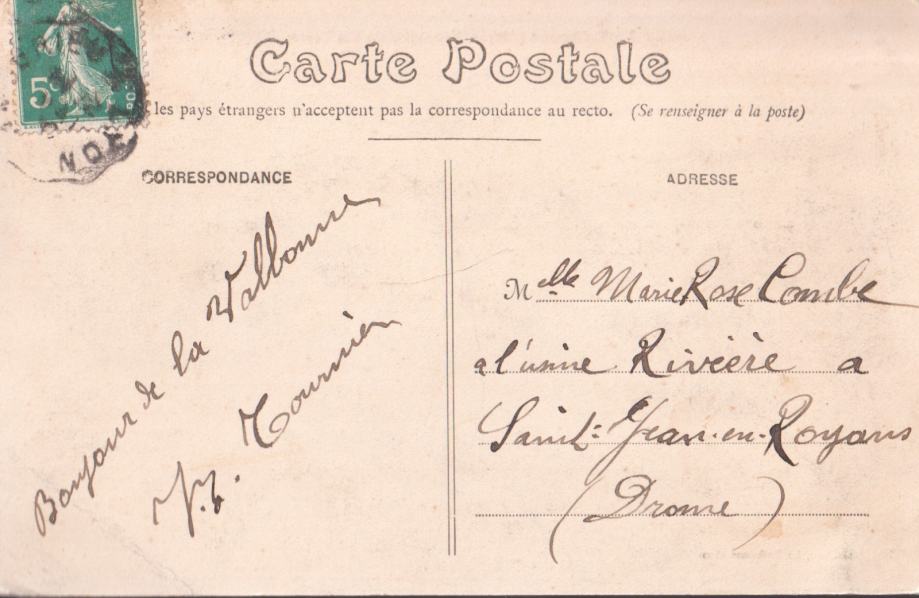 5c
Carte Postale
les pays étrangers n'acceptent pas la correspondance au recto. (Se renseigner à la poste)
CORRESPONDANCE
Bonjour de la Valbonne
Tournier
ADRESSE
Melle Marie Rose Combe
a l'usine Rivière a
Saint-Jean-en-Royans
(Drome)